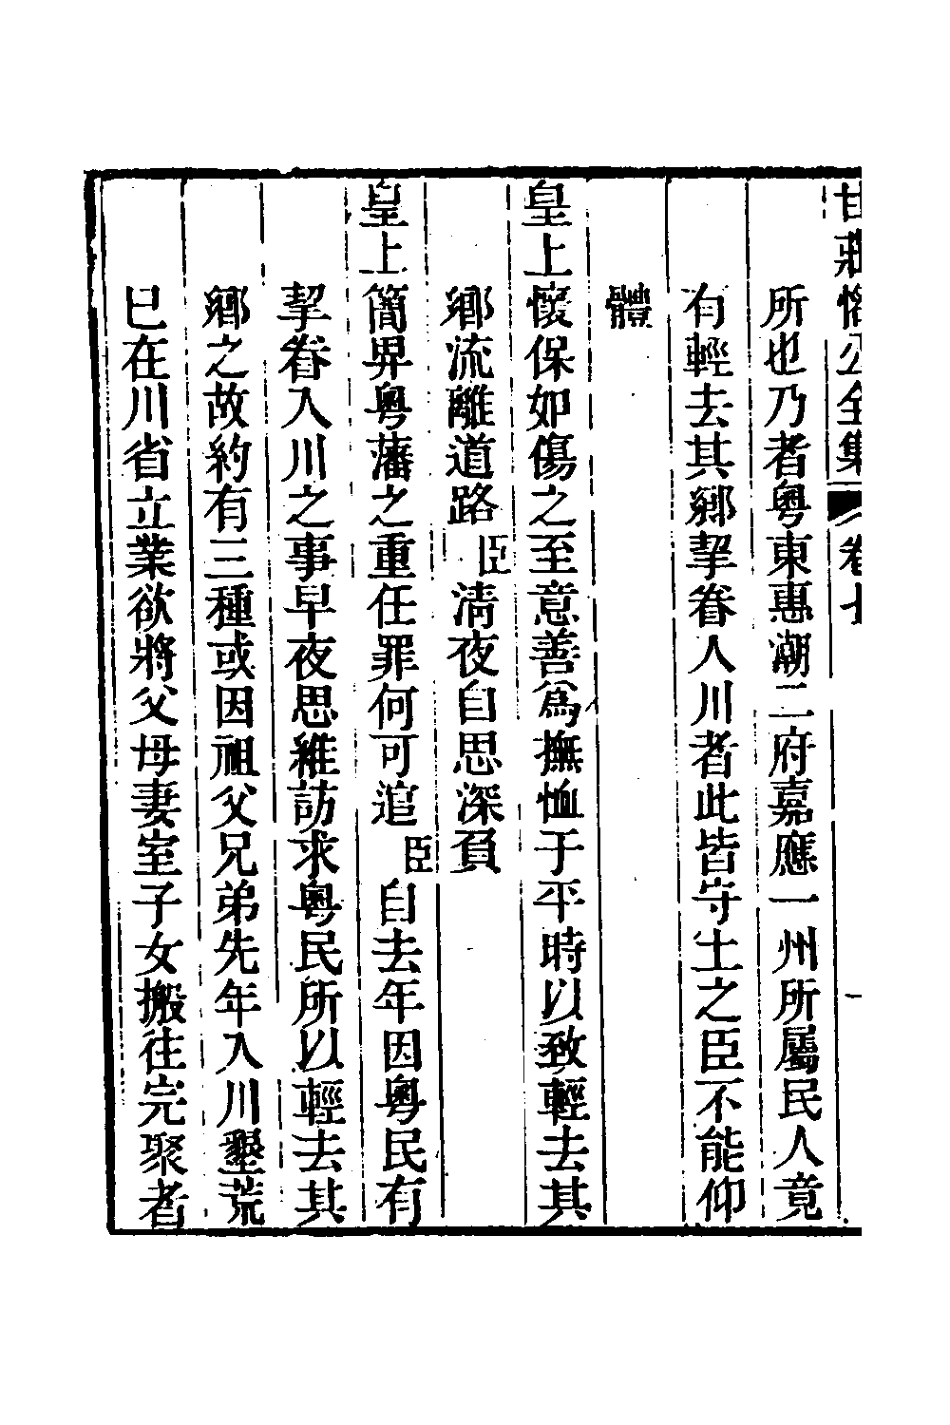 甘莊恪公全集 卷七 一
所也乃者粤東惠潮二府嘉應一州所屬民人竟
有輕去其鄉挈眷入川者此皆守土之臣不能仰
體
皇上懷保如傷之至意善爲撫恤于平時以致輕去其
鄉流離道路臣清夜自思深負
皇上簡畀粤藩之重任罪何可逭臣自去年因粤民有
挈眷入川之事早夜思維訪求粤民所以輕去其
鄉之故約有三種或因祖父兄弟先年入川墾荒
已在川省立業欲將父母妻室子女搬往完聚者